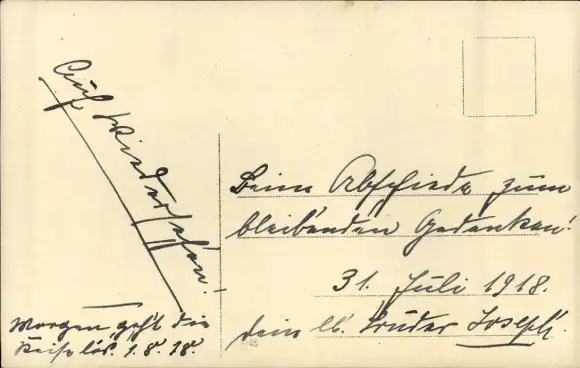 Auf Wiedersehen!
Morgen geht die
Reise los. 1.8.18.
Beim Abschiede zum
bleibenden Gedenken!
31. Juli 1918.
Dein lb. Bruder Joseph.